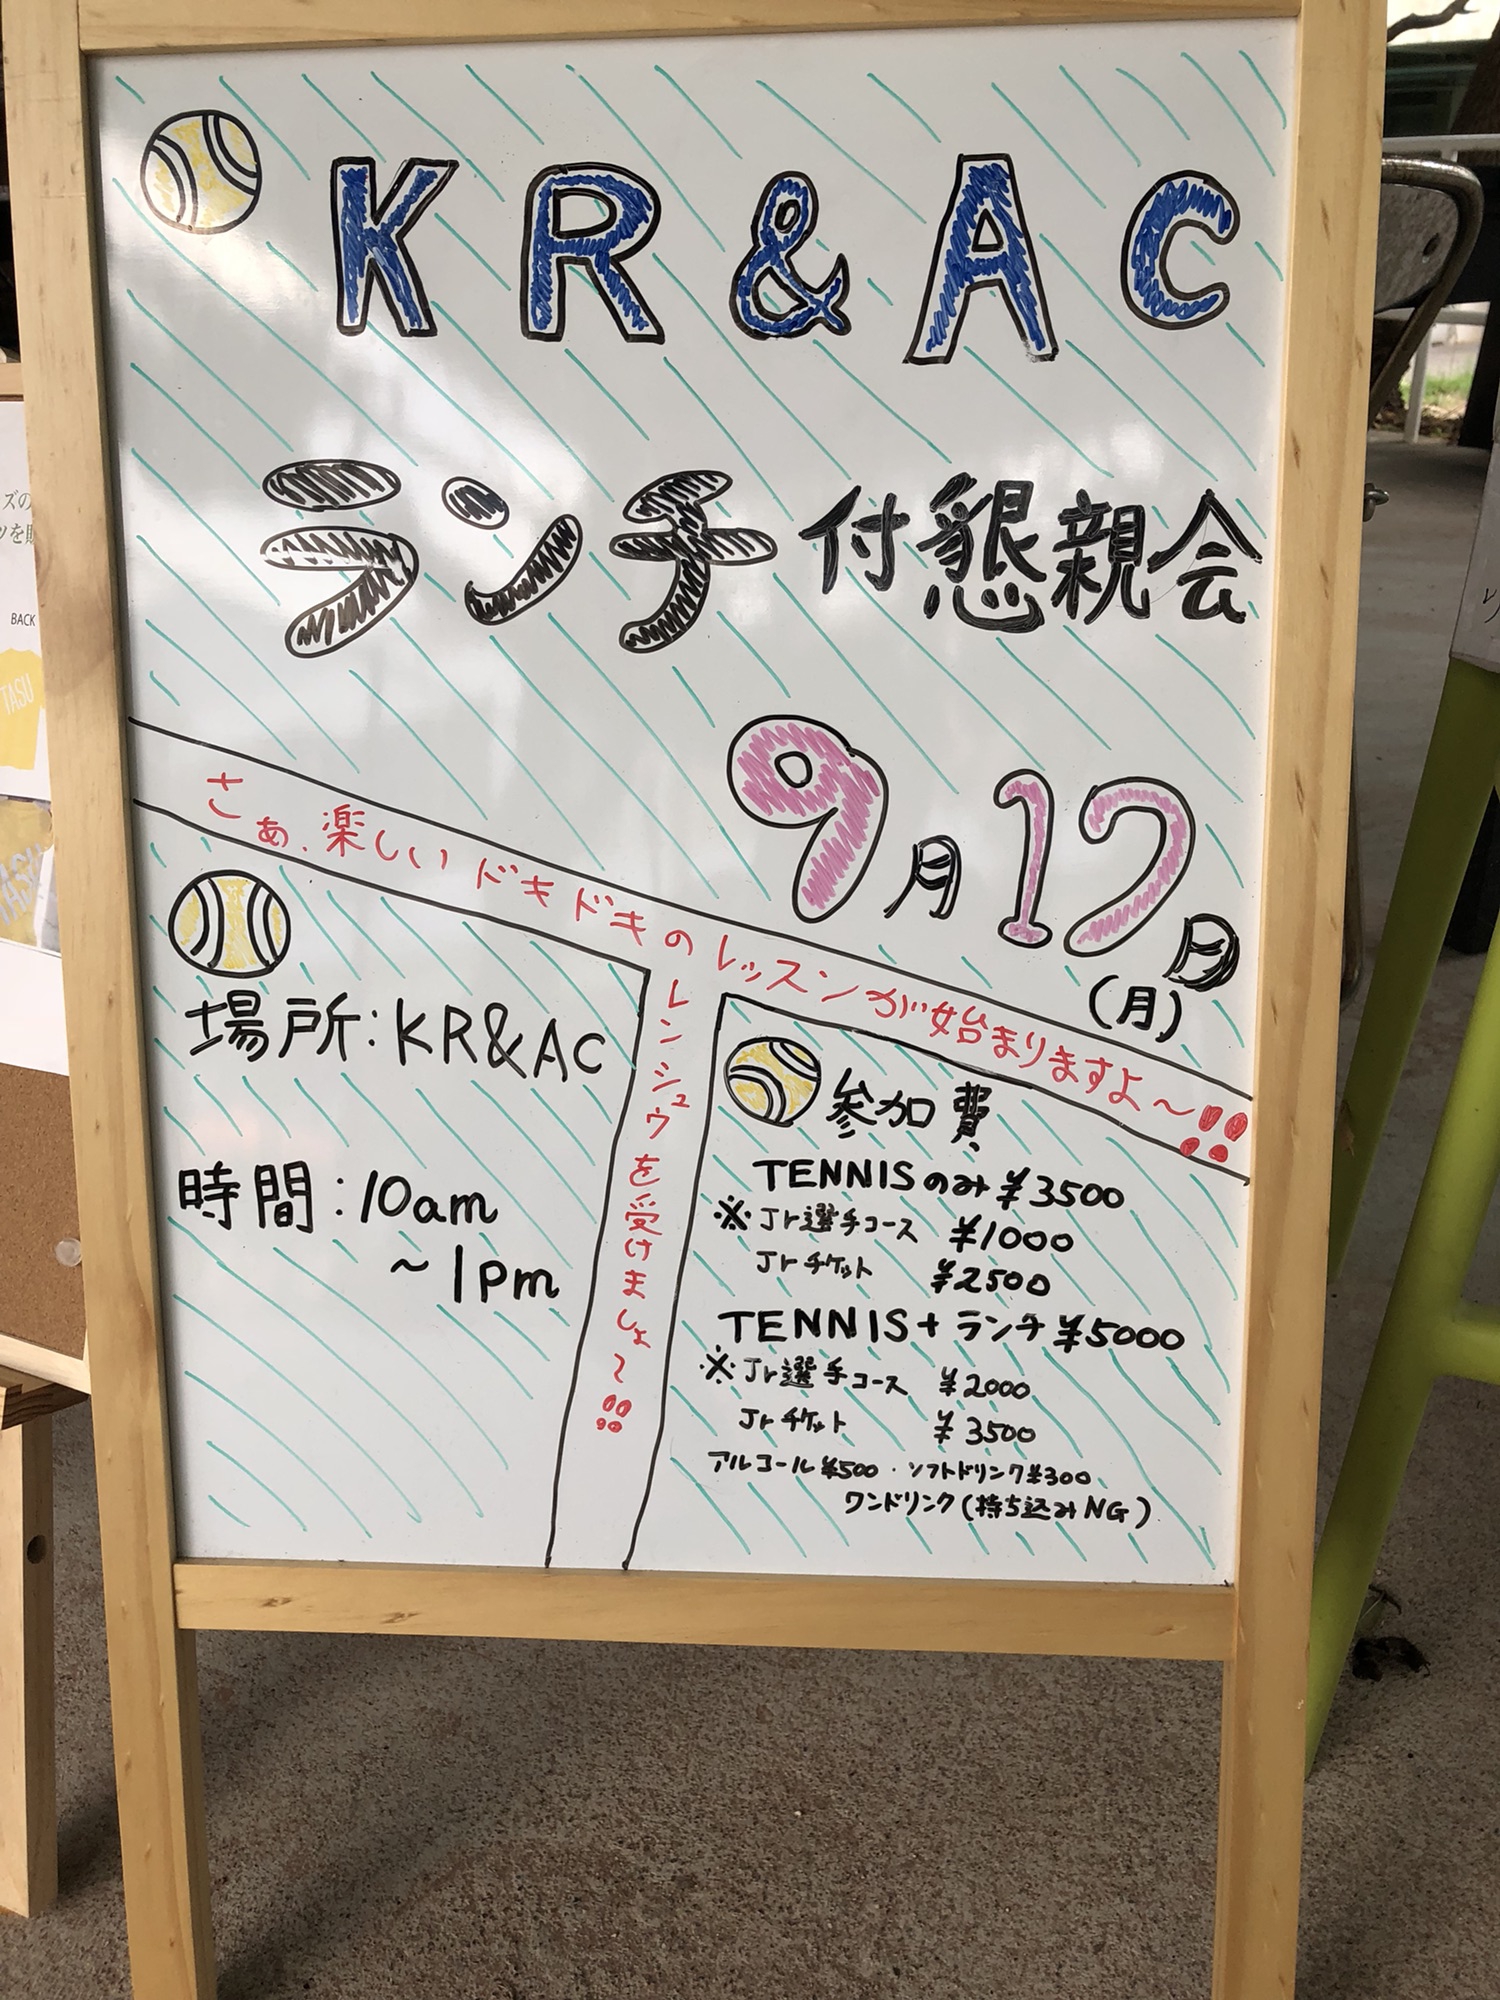 KR&AC
ランチ付懇親会
9月17日
(月)
さぁ、楽しいドキドキのレッスンが始まりますよ〜!!
レンシュウを受けましょ〜!!
場所:KR&AC
時間:10am
〜1pm
参加費
TENNISのみ ¥3500
※Jr選手コース ¥1000
Jrチケット ¥2500
TENNIS+ランチ ¥5000
※Jr選手コース ¥2000
Jrチケット ¥3500
アルコール¥500・ソフトドリンク¥300
ワンドリンク(持ち込みNG)
ズの
BACK
TASU